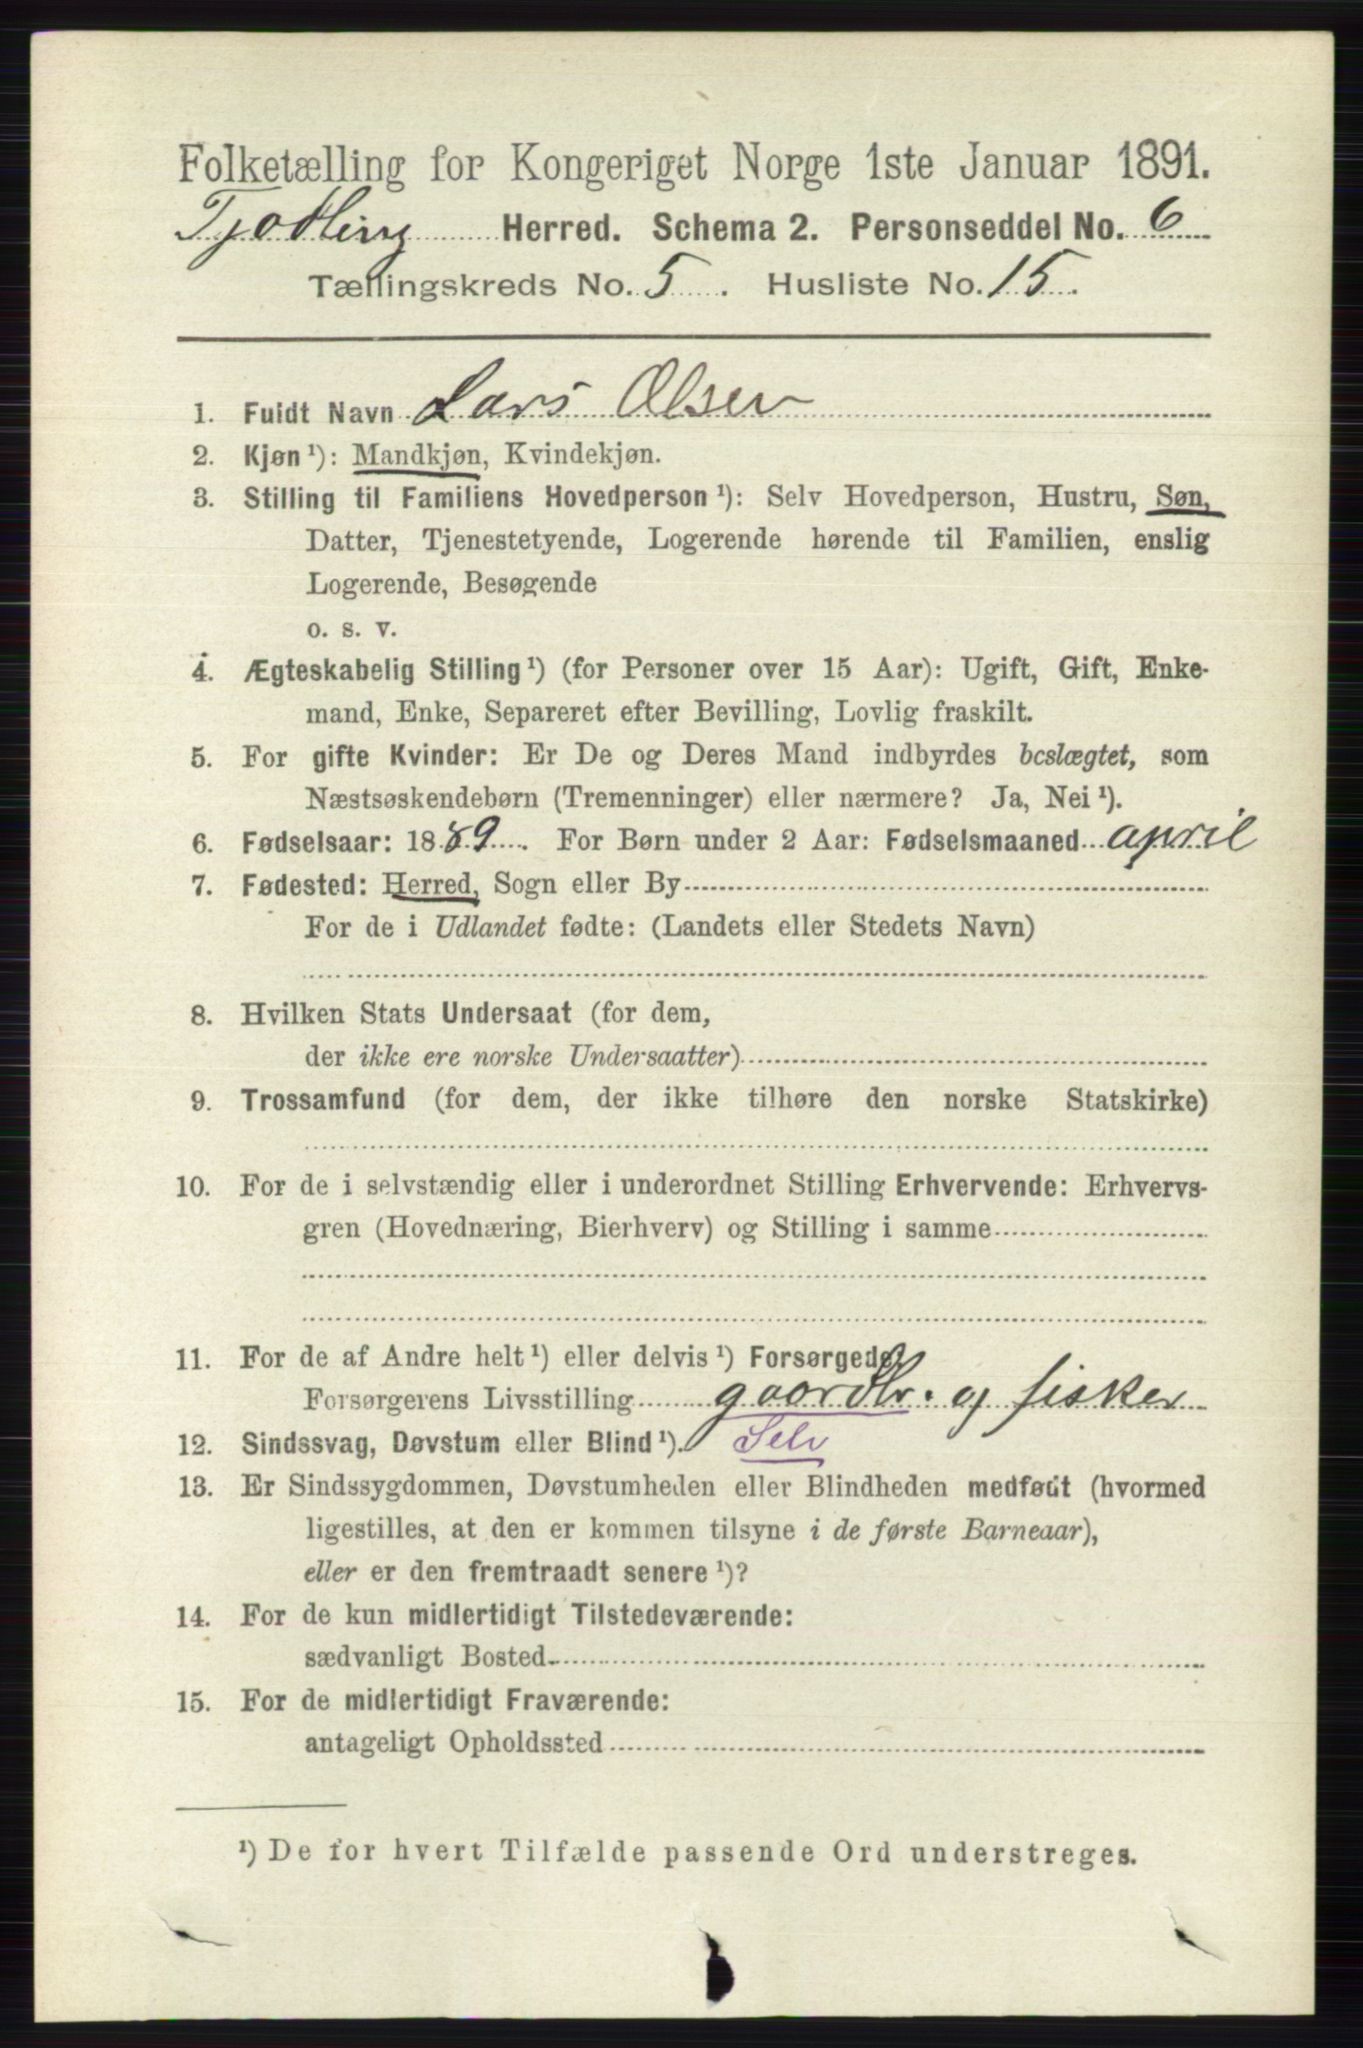 Folketælling for Kongeriget Norge 1ste Januar 1891.
Tjødling Herred. Schema 2. Personseddel No. 6
Tællingskreds No. 5. Husliste No. 15.
1. Fuldt Navn Lars Olsen
2. Kjøn ¹): Mandkjøn, Kvindekjøn.
3. Stilling til Familiens Hovedperson ¹): Selv Hovedperson, Hustru, Søn,
Datter, Tjenestetyende, Logerende hørende til Familien, enslig
Logerende, Besøgende
o. s. v.
4. Ægteskabelig Stilling ¹) (for Personer over 15 Aar): Ugift, Gift, Enke-
mand, Enke, Separeret efter Bevilling, Lovlig fraskilt.
5. For gifte Kvinder: Er De og Deres Mand indbyrdes beslægtet, som
Næstsøskendebørn (Tremenninger) eller nærmere? Ja, Nei ¹).
6. Fødselsaar: 1889. For Børn under 2 Aar: Fødselsmaaned april
7. Fødested: Herred, Sogn eller By
For de i Udlandet fødte: (Landets eller Stedets Navn)
8. Hvilken Stats Undersaat (for dem,
der ikke ere norske Undersaatter)
9. Trossamfund (for dem, der ikke tilhøre den norske Statskirke)
10. For de i selvstændig eller i underordnet Stilling Erhvervende: Erhvervs-
gren (Hovednæring, Bierhverv) og Stilling i samme
11. For de af Andre helt ¹) eller delvis ¹) Forsørgede,
Forsørgerens Livsstilling gaardbr. og fisker
12. Sindssvag, Døvstum eller Blind ¹). Selv
13. Er Sindssygdommen, Døvstumheden eller Blindheden medfødt (hvormed
ligestilles, at den er kommen tilsyne i de første Barneaar),
eller er den fremtraadt senere ¹)?
14. For de kun midlertidigt Tilstedeværende:
sædvanligt Bosted
15. For de midlertidigt Fraværende:
antageligt Opholdssted
¹) De for hvert Tilfælde passende Ord understreges.